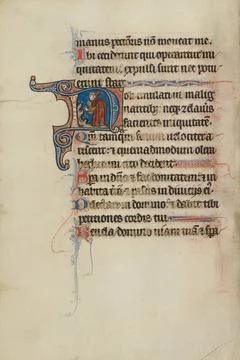 manus peccoris nō moueat me.
Ibi ceciderunt qui operantur ini
quitatem expulsi sunt nec potu
erunt stare
Noli emulari in malig
nantibus neqz zelaueris
facientes iniquitatē.
Qm̄ tamquam fenum uelociter a
rescent: et quemadmodum olera
herbarum cito decident.
Spera in dn̄o et fac bonitatem: et in
habita t̄rā et pasceris in diuiciis ei.
Delectare in domino: et dabit tibi
petitiones cordis tui.
Reuela domino uiam tuā et spe